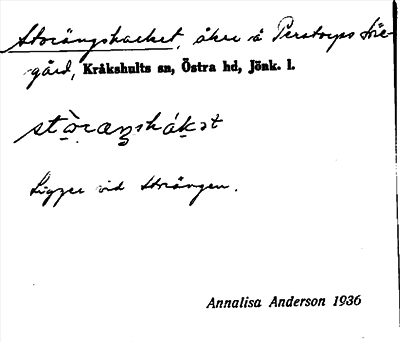 Storängshacket, åkre å Perstorps Säte-
gård, Kråkshults sn, Östra hd, Jönk. l.
stò̱raŋsháḵət
Ligger vid Storängen.
Annalisa Anderson 1936